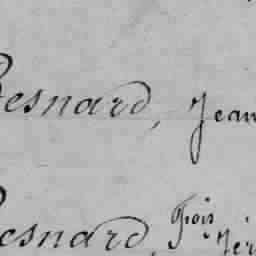 Besnard, Jean
Besnard, fois Jér